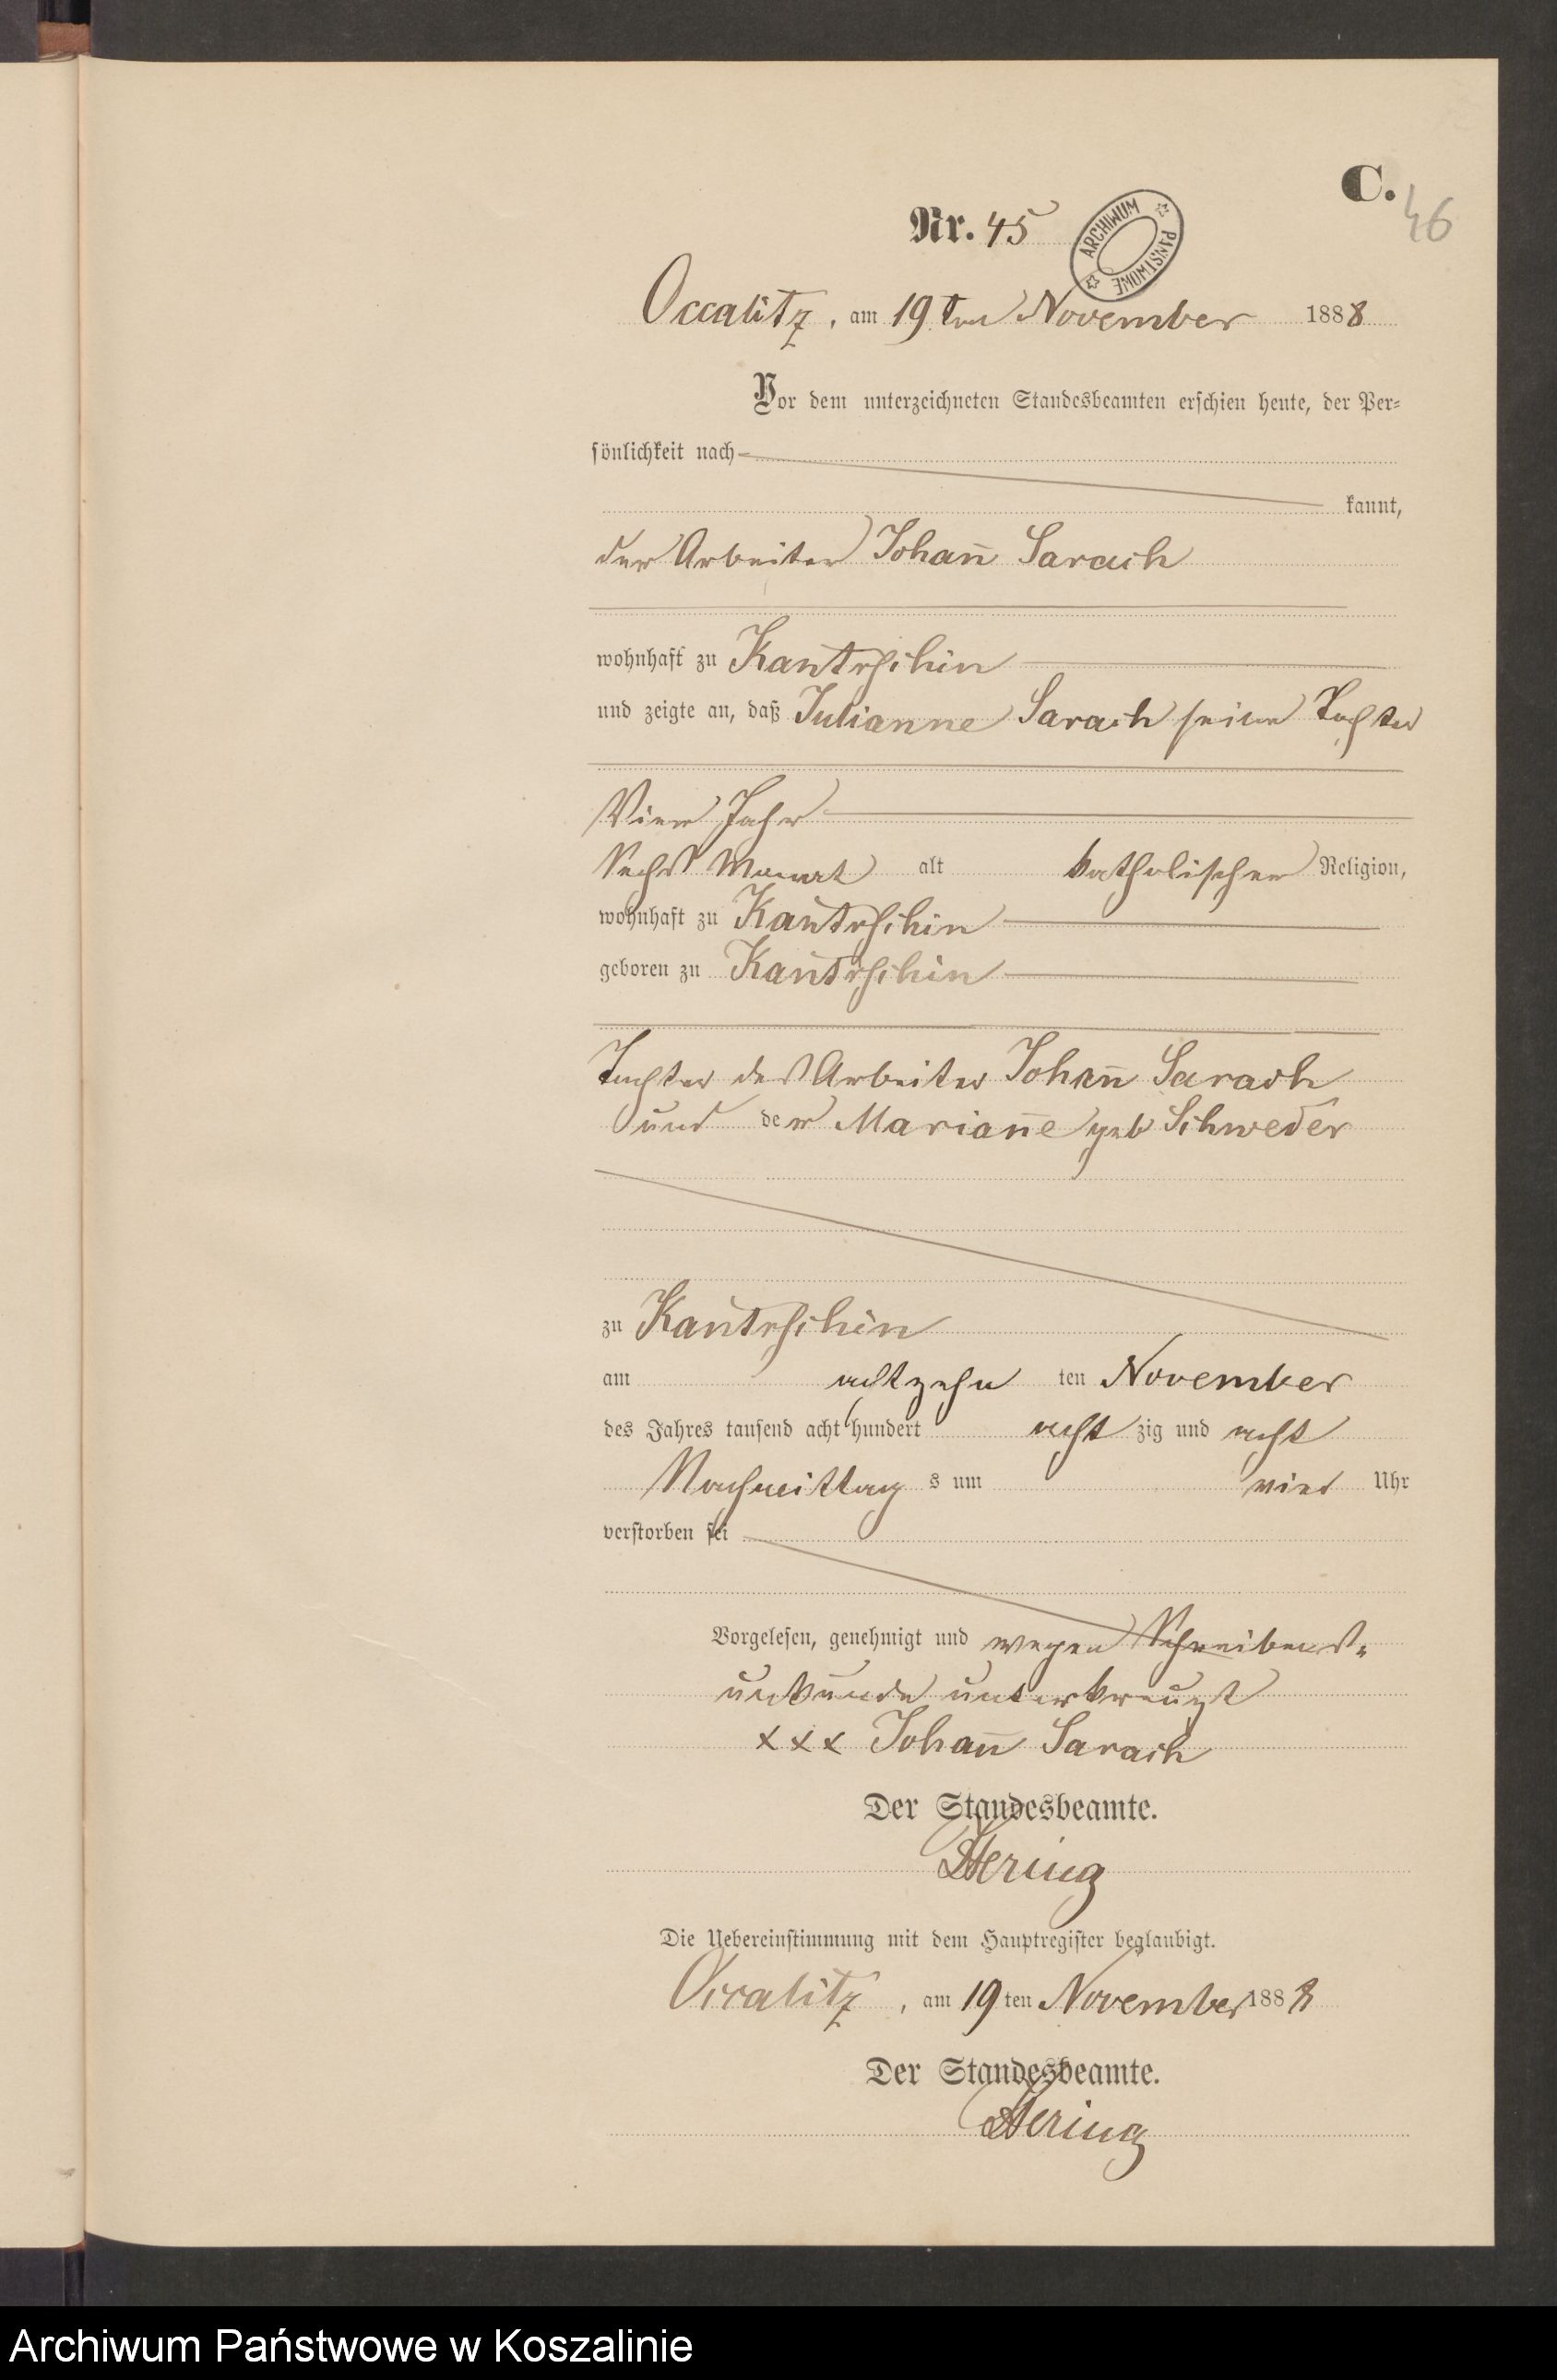 C.
46
Nr. 45
ARCHIWUM PAŃSTWOWE
Occalitz, am 19 ten November 1888
Vor dem unterzeichneten Standesbeamten erschien heute, der Per=
sönlichkeit nach
kannt,
der Arbeiter Johan̄ Sarach
wohnhaft zu Kantrschin
und zeigte an, daß Julianne Sarach seine Tochter
Vier Jahr
Sechs Monat alt katholischer Religion,
wohnhaft zu Kantrschin
geboren zu Kantrschin
Tochter des Arbeiter Johan̄ Sarach
und der Marian̄e geb Schweder
zu Kantrschin
am achtzehn ten November
des Jahres tausend acht hundert acht zig und acht
Nachmittag s um vier Uhr
verstorben sei
Vorgelesen, genehmigt und wegen Schreibens=
unkunde unterkreuzt
xxx Johan̄ Sarach
Der Standesbeamte.
Hering
Die Uebereinstimmung mit dem Hauptregister beglaubigt.
Occalitz, am 19 ten November 1888
Der Standesbeamte.
Hering
Archiwum Państwowe w Koszalinie